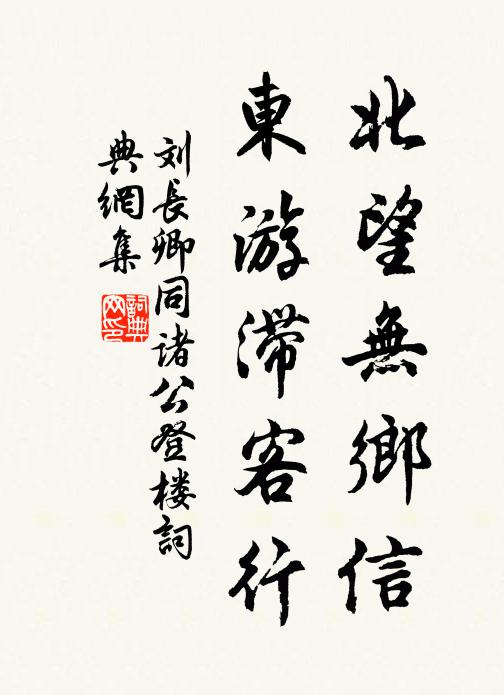 北望無鄉信
東游滯客行
刘長卿同诸公登楼詞
典網集
詞典网印